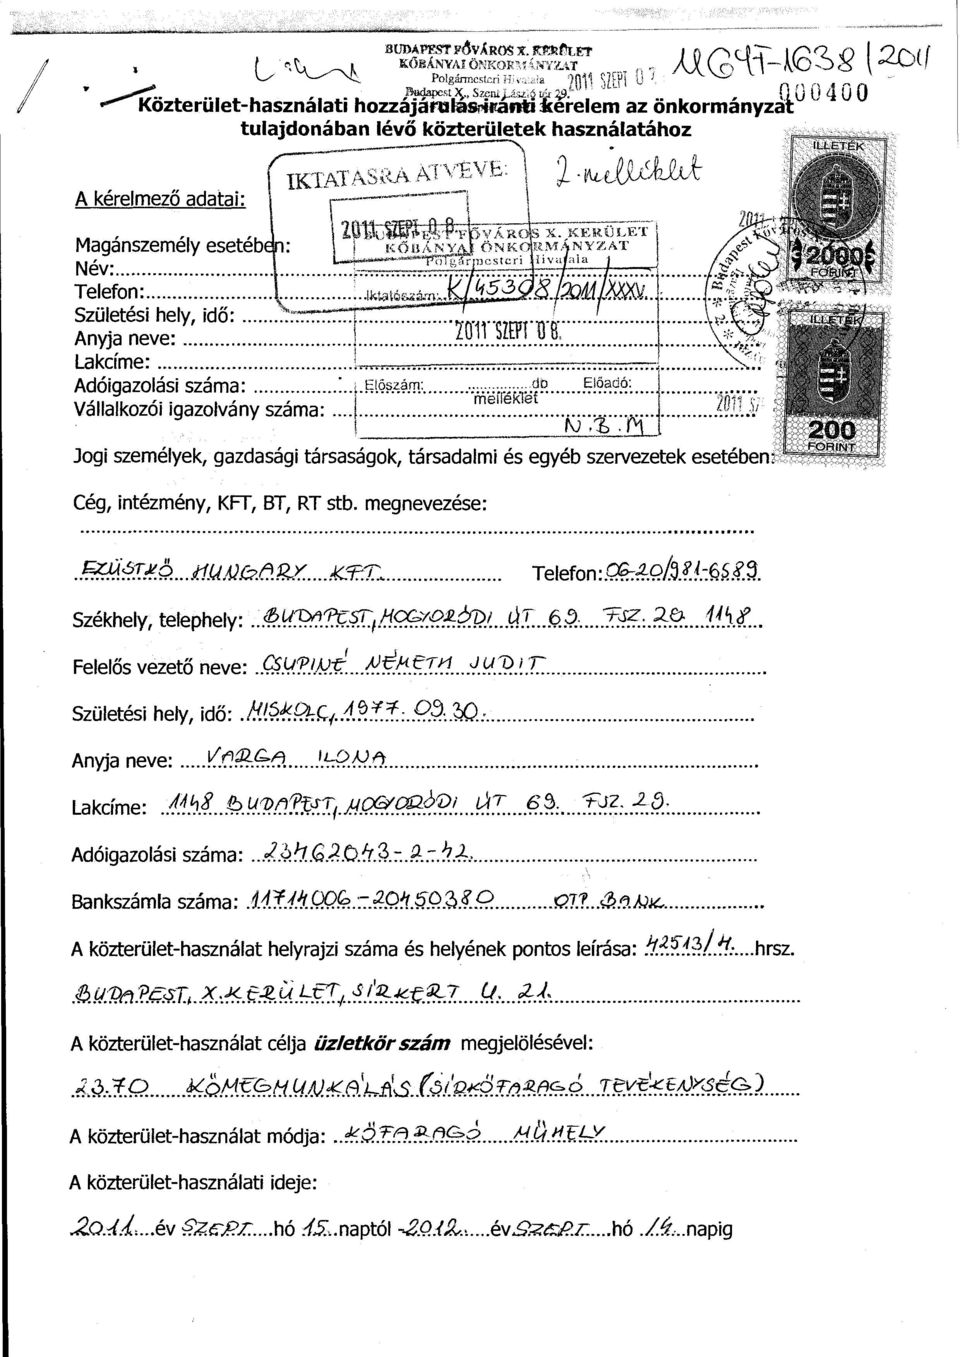 BUDAPEST FŐVÁROS X. KERÜLET
KŐBÁNYAI ÖNKORMÁNYZAT
Polgármesteri Hivatala
2011 SZEPT 0
Budapest X., Szent László tér 29.
000400
Közterület-használati hozzájárulás iránti kérelem az önkormányzat
tulajdonában lévő közterületek használatához
IKTATÁSRA ÁTVÉVE:
2 melléklet
2011 SZEPT. 0 8.
ILLETÉK
2000
FORINT
A kérelmező adatai:
BUDAPEST FŐVÁROS X. KERÜLET
KŐBÁNYAI ÖNKORMÁNYZAT
Polgármesteri Hivatala
Magánszemély esetében:
Név:
Telefon:
Iktatószám: K/45308/2011/XXXV.
Születési hely, idő:
2011 SZEPT 0 8.
Anyja neve:
Lakcíme:
Adóigazolási száma:
Előszám: db melléklet Előadó:
Vállalkozói igazolvány száma:
N.B.M
ILLETÉK
200
FORINT
Jogi személyek, gazdasági társaságok, társadalmi és egyéb szervezetek esetében:
Cég, intézmény, KFT, BT, RT stb. megnevezése:
EZÜSTKŐ HUNGARY KFT. Telefon: 06-20/981-6589.
Székhely, telephely: BUDAPEST, MOGYORÓDI ÚT 69. FSZ. 28. 1148.
Felelős vezető neve: CSUPINÉ NÉMETH JUDIT
Születési hely, idő: MISKOLC, 1977. 09. 30.
Anyja neve: VARGA ILONA
Lakcíme: 1148 BUDAPEST, MOGYORÓDI ÚT 69. FSZ. 29.
Adóigazolási száma: 23462043-2-42.
Bankszámla száma: 11714006-20450380 OTP BANK
A közterület-használat helyrajzi száma és helyének pontos leírása: 42513/4. hrsz.
BUDAPEST, X. KERÜLET, SÍRKERT U. 21.
A közterület-használat célja üzletkör szám megjelölésével:
23.70 KŐMEGMUNKÁLÁS (SÍRKŐFARAGÓ TEVÉKENYSÉG)
A közterület-használat módja: KŐFARAGÓ MŰHELY
A közterület-használati ideje:
2011. év SZEPT. hó 15. naptól -2012. év SZEPT. hó 14. napig